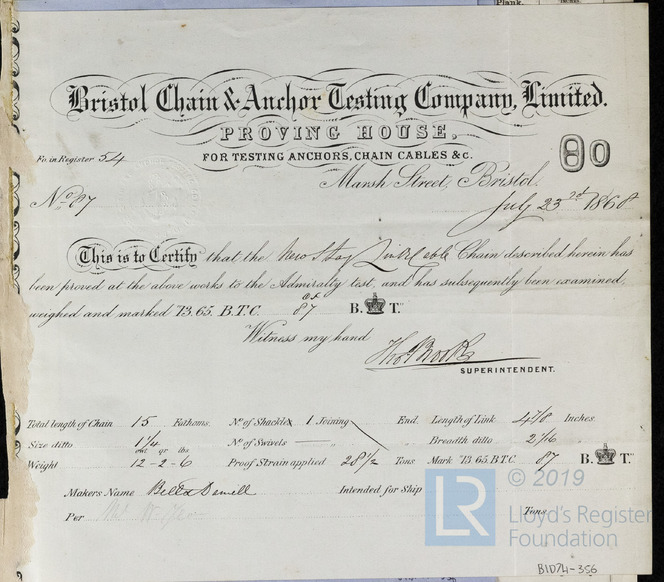 Plank.
Bristol Chain & Anchor Testing Company, Limited.
PROVING HOUSE,
FOR TESTING ANCHORS, CHAIN CABLES &C.
Fo. in Register 54
80
Marsh Street, Bristol,
No. 87
July 23rd 1868
This is to Certify that the Chain described herein has
been proved at the above works to the Admiralty test, and has subsequently been examined,
weighed and marked "13.65. B.T.C. 87 B. T."
Witness my hand
SUPERINTENDENT.
Total length of Chain 15 Fathoms. No. of Shackles 1 Joining End. Length of Link 4 7/8 Inches.
Size ditto 1 1/4 No. of Swivels — " Breadth ditto "
cwt qr lbs
Weight 12-2-6 Proof Strain applied 28 1/2 Tons Mark "13.65. B.T.C. 87 B. T."
Makers Name Intended for Ship
Per Tons
© 2019
LR
Lloyd's Register
Foundation
B1D74-356